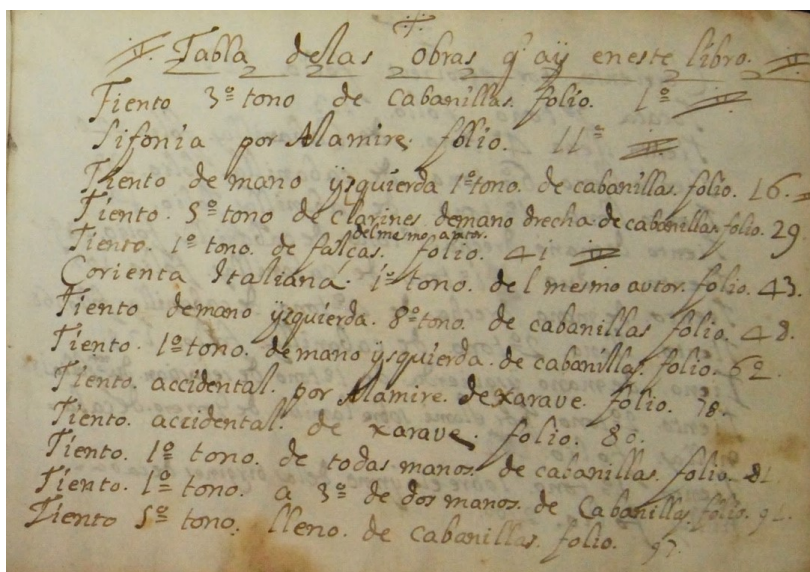 Tabla delas obras q̃ ay eneste libro.
Tiento 3º tono de cabanillas. folio. 1º
Sifonia por Alamire. folio. 11º
Tiento de mano yzquierda 1º tono. de cabanillas. folio. 16.
Tiento. 5º tono de clarines demano drecha de cabanillas folio. 29
delmesmo autor.
Tiento. 1º tono. de falças. folio. 41
Corienta Italiana. 1º tono. del mesmo autor. folio. 43.
Tiento demano yzquierda. 8º tono. de cabanillas folio. 48.
Tiento. 1º tono. demano ysquierda. de cabanillas. folio. 62.
Tiento. accidental. por Alamire. de xarave. folio. 78.
Tiento. accidental. de xarave. folio. 80.
Tiento. 1º tono. de todas manos. de cabanillas. folio. 81
Tiento. 1º tono. a 3º de dos manos. de Cabanillas. folio.
Tiento 5º tono. lleno. de cabanillas. folio. 97.